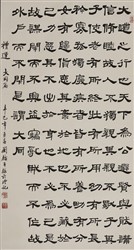 大道之行也天下為公選賢與能講
信修睦故人不獨親其親不獨子其
子使老有所終壯有所用幼有所長
矜寡孤獨廢疾者皆有所養男有分
女有歸貨惡其棄於地也不必藏於
己力惡其不出於身也不必為己是
故謀閉而不興盜竊亂賊而不作故
外戶而不閉是謂大同
禮運大同篇